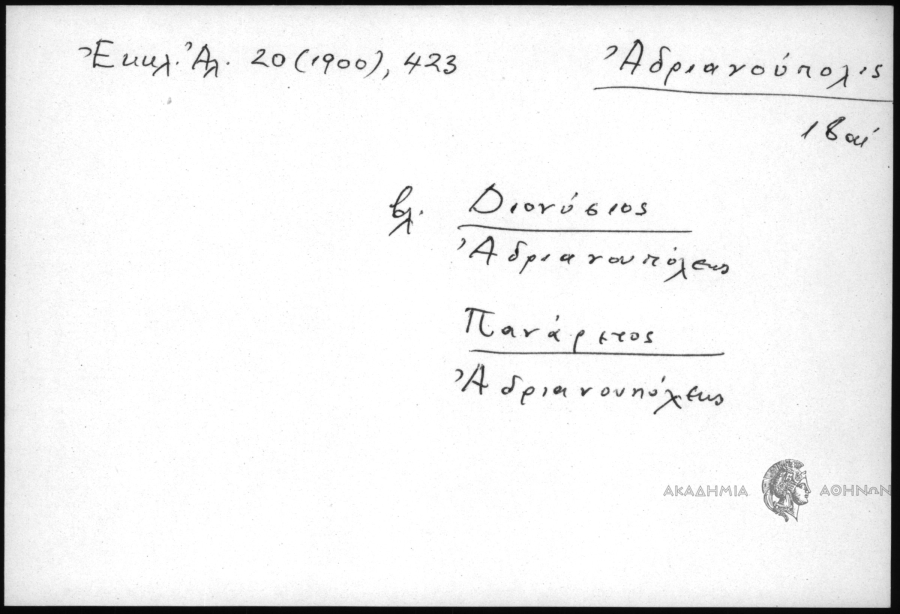 Ἐκκλ. Ἀλ. 20 (1900), 423
Ἀδριανούπολις
18 αἰ
βλ. Διονύσιος
Ἀδριανουπόλεως
Πανάρετος
Ἀδριανουπόλεως
ΑΚΑΔΗΜΙΑ ΑΘΗΝΩΝ